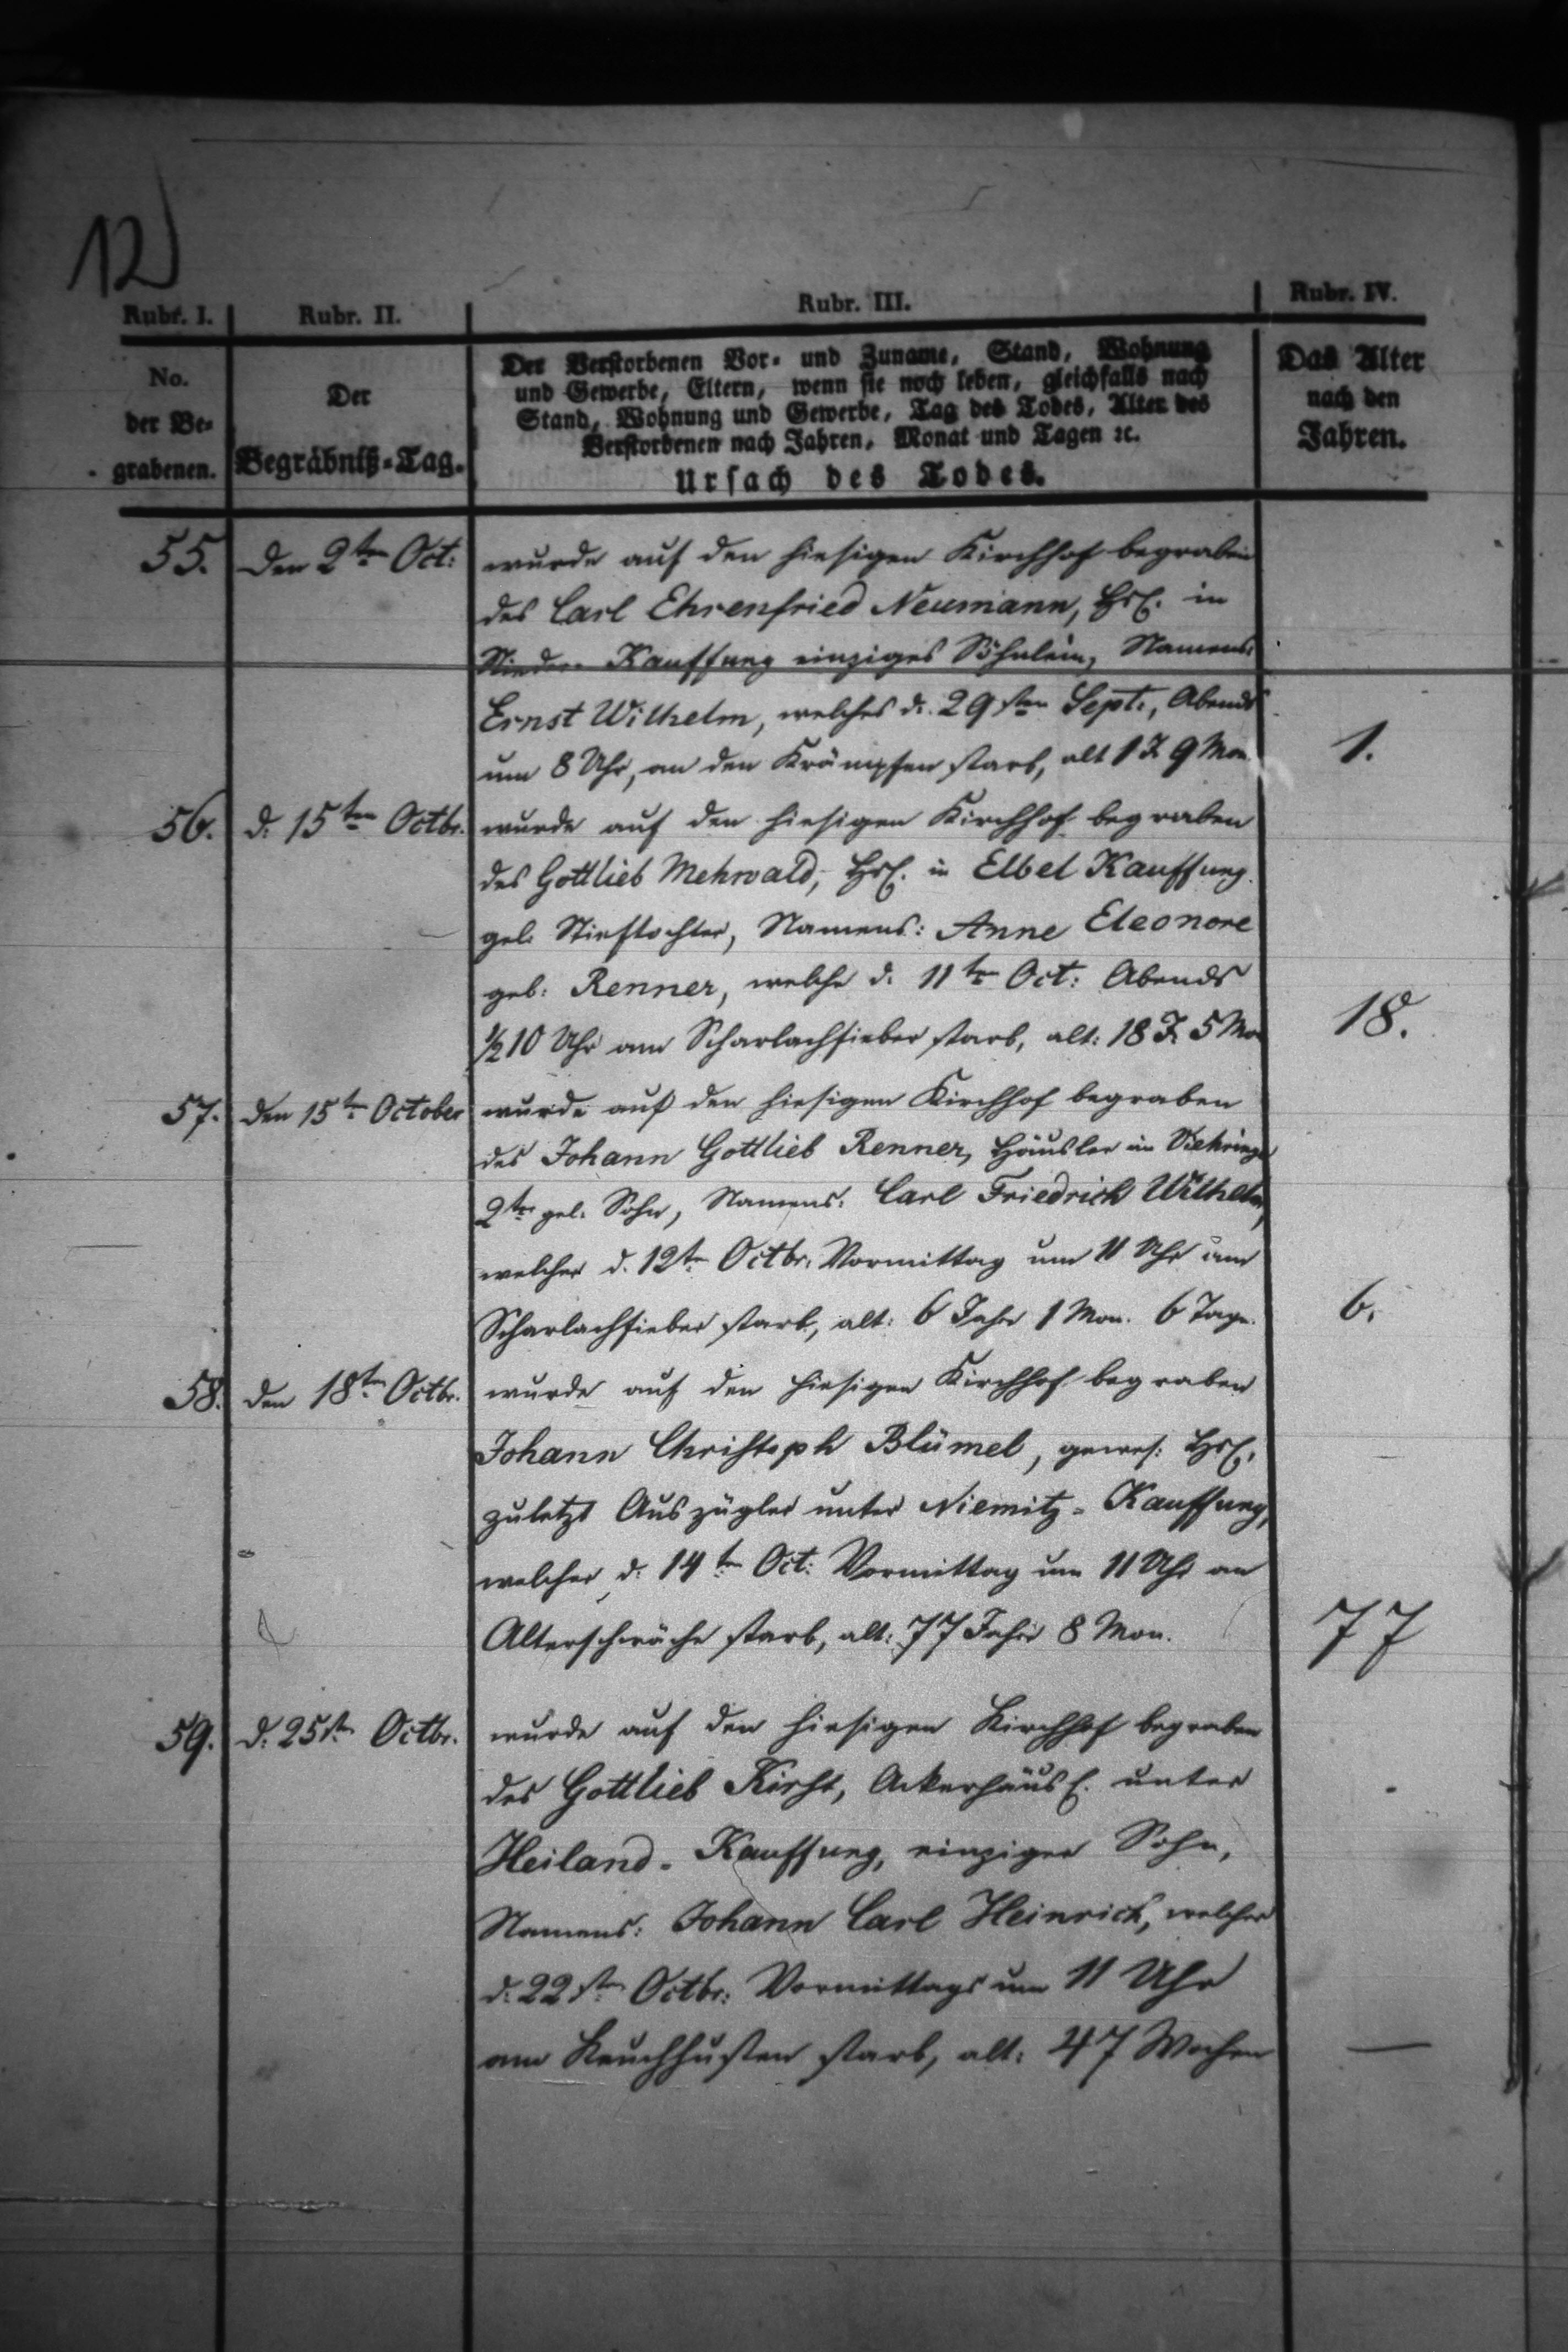 12)
Rubr. I. Rubr. II. Rubr. III. Rubr. IV.
No. der Be- grabenen.
Der Begräbniß-Tag.
Der Verstorbenen Vor- und Zuname, Stand, Wohnung
und Gewerbe, Eltern, wenn sie noch leben, gleichfalls nach
Stand, Wohnung und Gewerbe, Tag des Todes, Alter des
Verstorbenen nach Jahren, Monat und Tagen ꝛc.
Ursach des Todes.
Das Alter nach den Jahren.
55. Den 2ten Oct: wurde auf den hiesigen Kirchhof begraben
des Carl Ehrenfried Neumann, Hsl. in
Nieder Kauffung einziges Söhnlein, Namens:
Ernst Wilhelm, welches d. 29sten Sept., Abends
um 8 Uhr, an den Krämpfen starb, alt 1 J. 9 Mon. 1.
56. d. 15ten Octbr. wurde auf den hiesigen Kirchhof begraben
des Gottlieb Mehwald, Hsl. in Elbel Kauffung.
gel. Stieftochter, Namens: Anne Eleonore
geb: Renner, welche d. 11ten Oct: Abends
½10 Uhr am Scharlachfieber starb, alt: 18 J. 5 Mo 18.
57. den 15ten October wurde auf den hiesigen Kirchhof begraben
des Johann Gottlieb Renner, Häusler in
2ter gel. Sohn, Namens: Carl Friedrich Wilhelm,
welcher d. 12ten Octbr. Vormittag um 11 Uhr am
Scharlachfieber starb, alt: 6 Jahr 1 Mon. 6 Tage. 6.
58. den 18ten Octbr. wurde auf den hiesigen Kirchhof begraben
Johann Christoph Blümel, gewes: Hsl.
zuletzt Auszügler unter Niemitz-Kauffung,
welcher d. 14ten Oct: Vormittag um 11 Uhr an
Alterschwäche starb, alt: 77 Jahr 8 Mon. 77
59. d. 25sten Octbr. wurde auf den hiesigen Kirchhof begraben
des Gottlieb Kirst, Ackerhäusl. unter
Heiland-Kauffung, einziger Sohn,
Namens: Johann Carl Heinrich, welcher
d. 22sten Octbr: Vormittags um 11 Uhr
am Keuchhusten starb, alt: 47 Wochen —